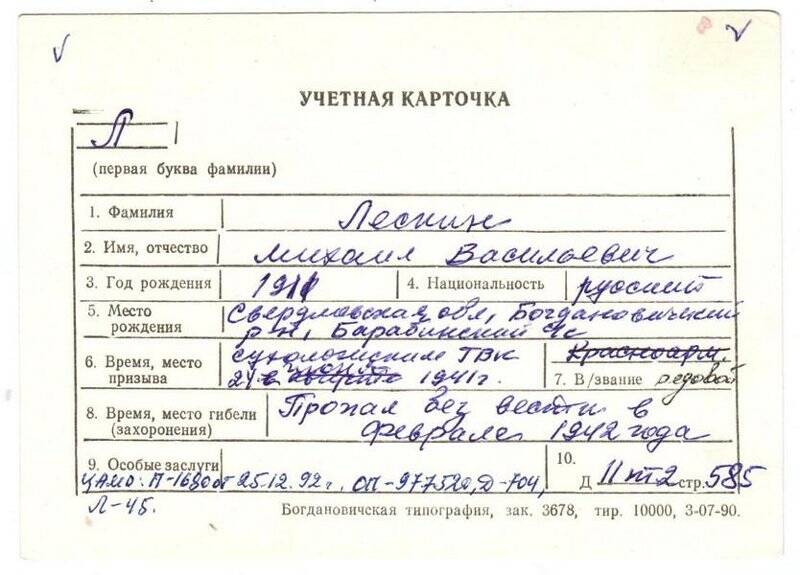 УЧЕТНАЯ КАРТОЧКА
Л
(первая буква фамилии)
1. Фамилия Лескин
2. Имя, отчество Михаил Васильевич
3. Год рождения 1911 4. Национальность русский
5. Место рождения Свердловская обл, Богдановичский
р-н, Барабинский с/с
6. Время, место призыва Сухоложским ТВК
24 июня 1941 г.
Красноарм.
7. В/звание рядовой
8. Время, место гибели (захоронения) Пропал без вести в
феврале 1942 года
9. Особые заслуги
10.
ЦАМО: П-1680 от 25.12.92 г. ОП-977520, Д-704,
Л-45.
Д 11 т 2 стр. 585
Богдановичская типография, зак. 3678, тир. 10000, 3-07-90.